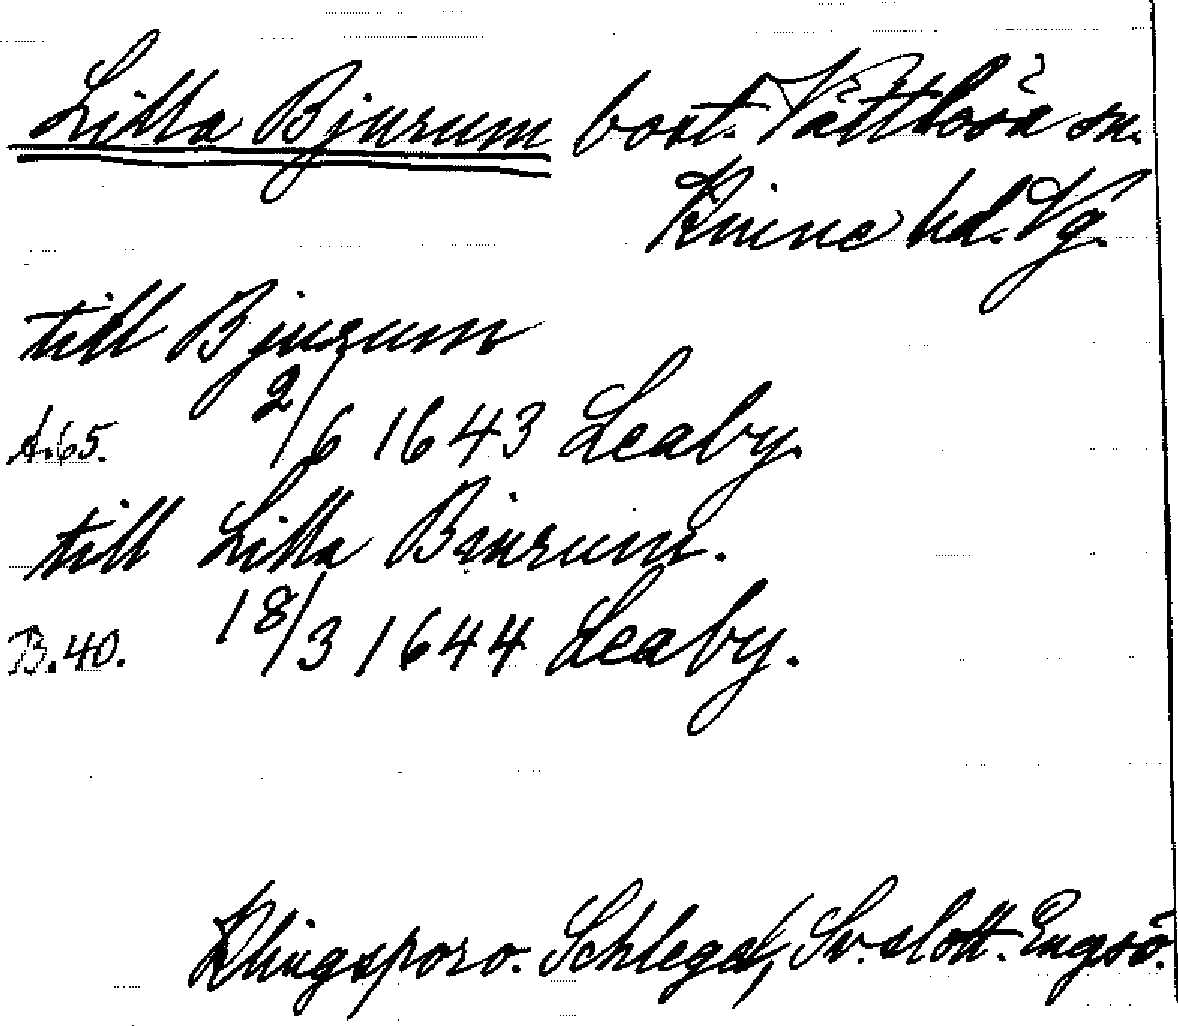 Lilla Bjurum bost. Vättlösa sn.
Kinne hd. Vg.
till Bjurum
A.65. 2/6 1643 Leaby.
till Lilla Bjurum.
B.40. 18/3 1644 Leaby.
Klingspor o. Schlegel, Sv. slott. Engsö.